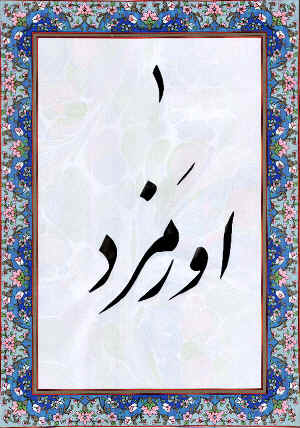 ۱
اورَمزد